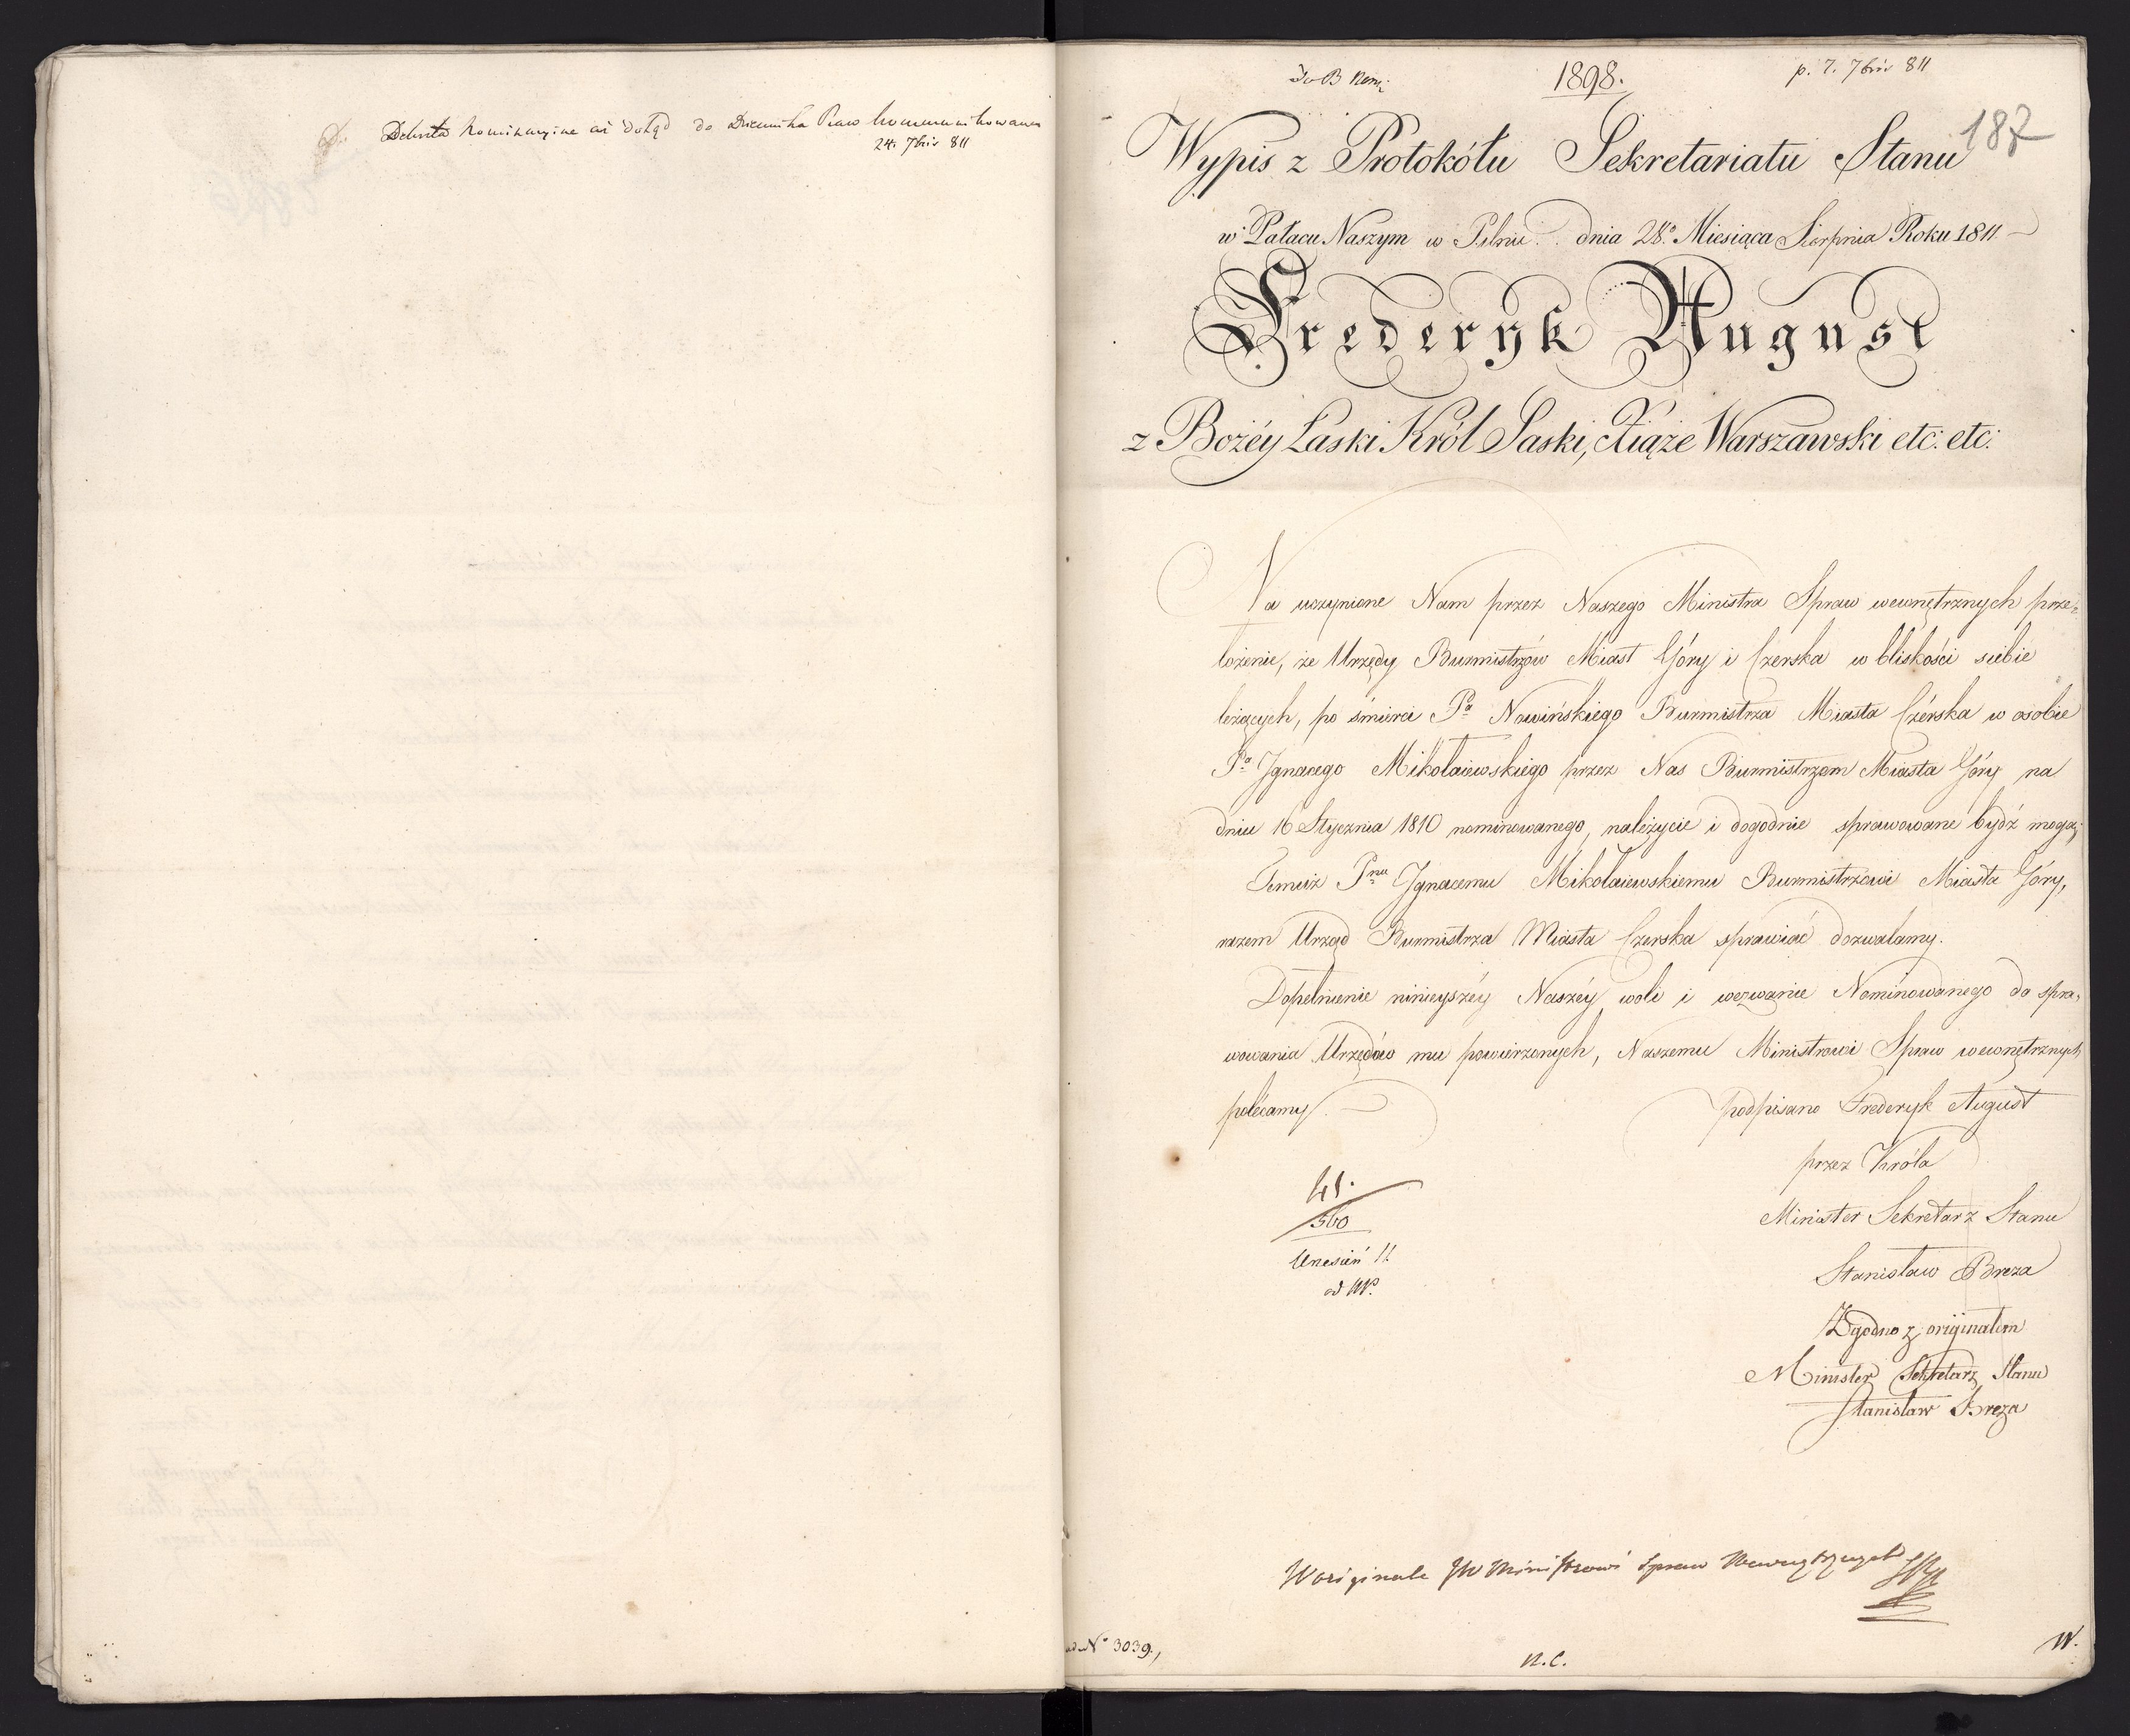 Dekreta Nominacyine aż dotąd do Dziennika Praw kommunikowane
24. 7bris 811
1898.
p. 7. 7bris 811
187
Wypis z Protokółu Sekretariatu Stanu
w Pałacu Naszym w Pilnic dnia 28.º Miesiąca Sierpnia Roku 1811
Frederyk August
z Bożéy Łaski Król Saski, Xiąże Warszawski etc: etc:
Na uczynione Nam przez Naszego Ministra Spraw wewnętrznych prze-
łożenie, że Urzędy Burmistrzów Miast Góry i Czerska w bliskości siebie
leżących, po śmierci Pª Nowińskiego Burmistrza Miasta Czérska w osobie
Pª Jgnacego Mikołaiewskiego przez Nas Burmistrzem Miasta Góry na
dniu 16 Stycznia 1810 nominowanego, należycie i dogodnie sprawowane bydź mogą;
Temuż Pnu Jgnacemu Mikołaiewskiemu Burmistrzowi Miasta Góry,
razem Urząd Burmistrza Miasta Czerska sprawiać dozwalamy.
Dopełnienie ninieyszéy Naszéy woli i wezwanie Nominowanego do spra-
wowania Urzędów mu powierzonych, Naszemu Ministrowi Spraw wewnętrznych
polécamy.
podpisano Frederyk August
przez Króla
Minister Sekretarz Stanu
Stanisław Breza
41.
560
Zgodno z originałem
Minister Sekretarz Stanu
Stanisław Breza
W originale JW Ministrowi Spraw Wewnętrznych
ad Nº 3039.,
N.C.
W.